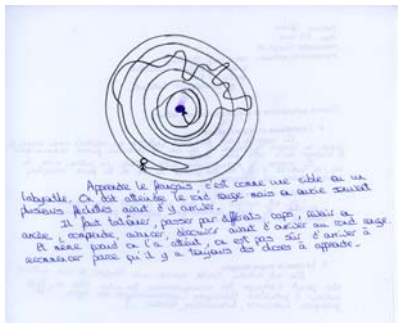 Apprendre le français, c'est comme une cible ou un
labyrinthe. On doit atteindre le rond rouge mais on envoie souvent
plusieurs fléchettes avant d'y arriver.
Il faut tâtonner, passer par différents caps, revenir en
arrière, comprendre, avancer, découvrir avant d'arriver au rond rouge.
Et même quand on l'a atteint, on est pas sûr d'arriver à
recommencer parce qu'il y a toujours des choses à apprendre.